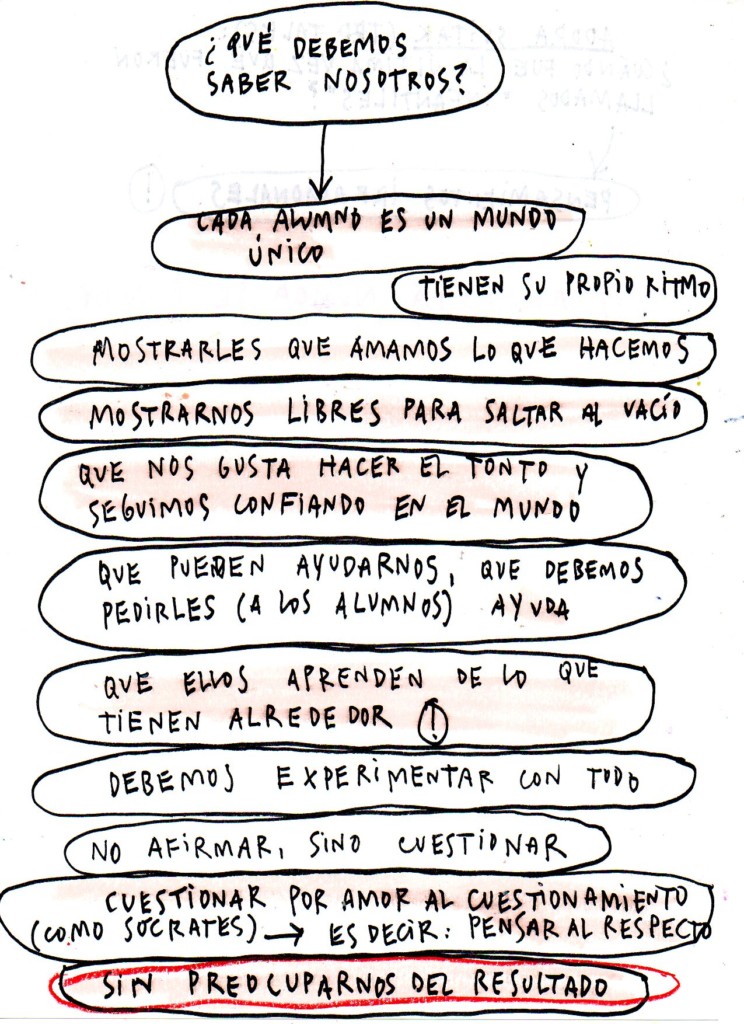 ¿QUÉ DEBEMOS
SABER NOSOTROS?
CADA ALUMNO ES UN MUNDO
ÚNICO
TIENEN SU PROPIO RITMO
MOSTRARLES QUE AMAMOS LO QUE HACEMOS
MOSTRARNOS LIBRES PARA SALTAR AL VACÍO
QUE NOS GUSTA HACER EL TONTO Y
SEGUIMOS CONFIANDO EN EL MUNDO
QUE PUEDEN AYUDARNOS, QUE DEBEMOS
PEDIRLES (A LOS ALUMNOS) AYUDA
QUE ELLOS APRENDEN DE LO QUE
TIENEN ALREDEDOR !
DEBEMOS EXPERIMENTAR CON TODO
NO AFIRMAR, SINO CUESTIONAR
CUESTIONAR POR AMOR AL CUESTIONAMIENTO
(COMO SÓCRATES) → ES DECIR: PENSAR AL RESPECTO
SIN PREOCUPARNOS DEL RESULTADO